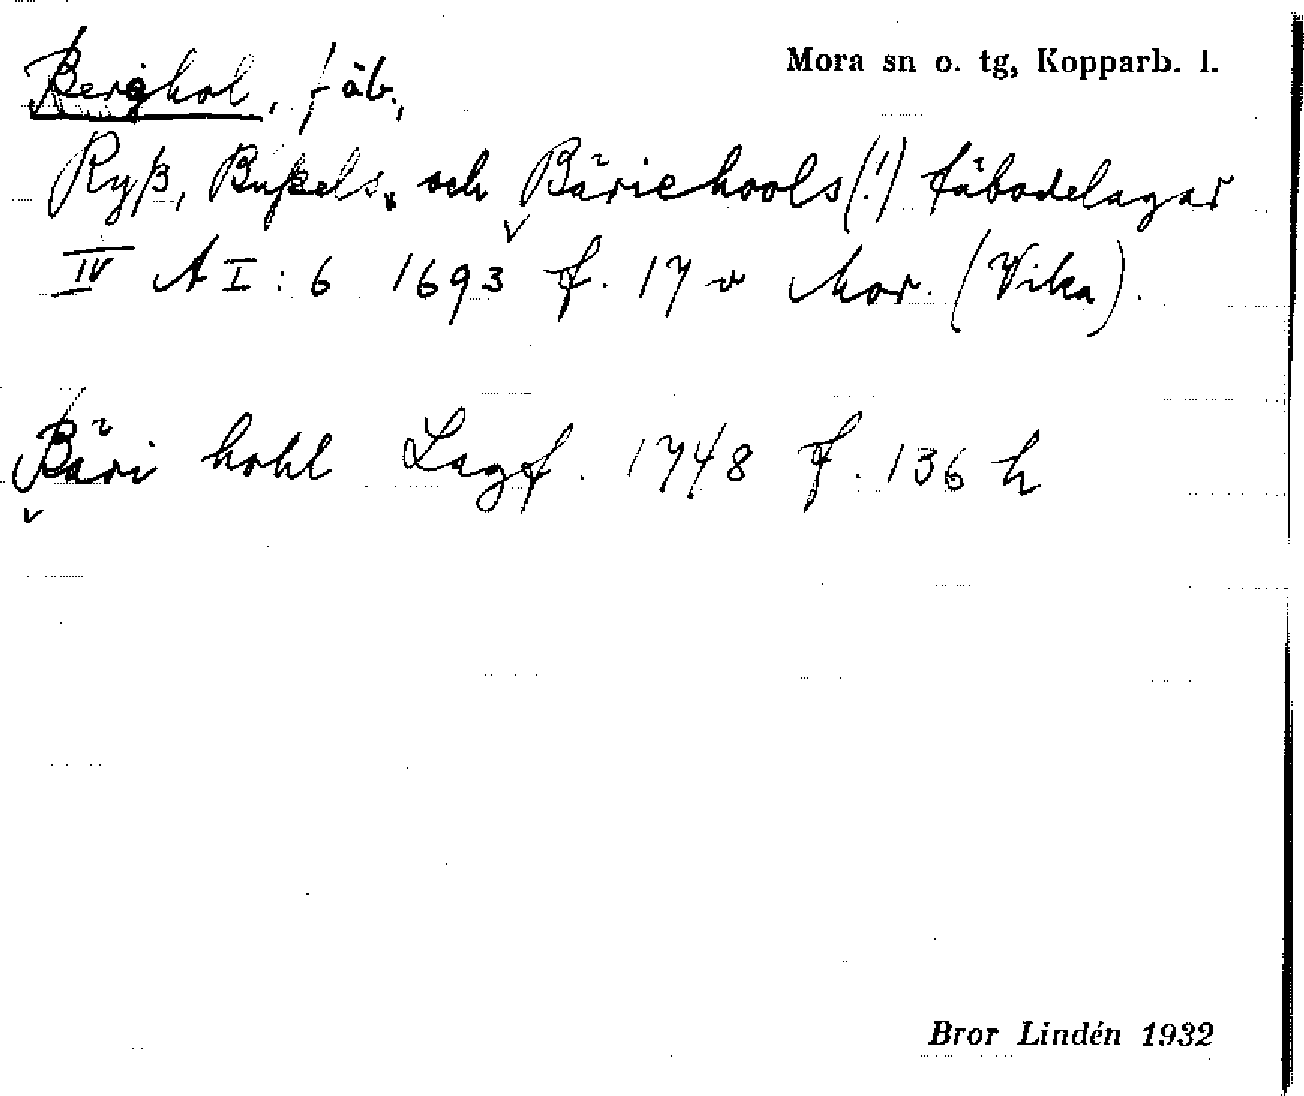 Berghol, fäb., Mora sn o. tg, Kopparb. l.
Ryß, Bußels, och Bäriehools(!) fäbodelagar
IV A I: 6 1693 f. 17 v Mor. (Vika).
Bäri hohl Lagf. 1748 f. 136 h
Bror Lindén 1932